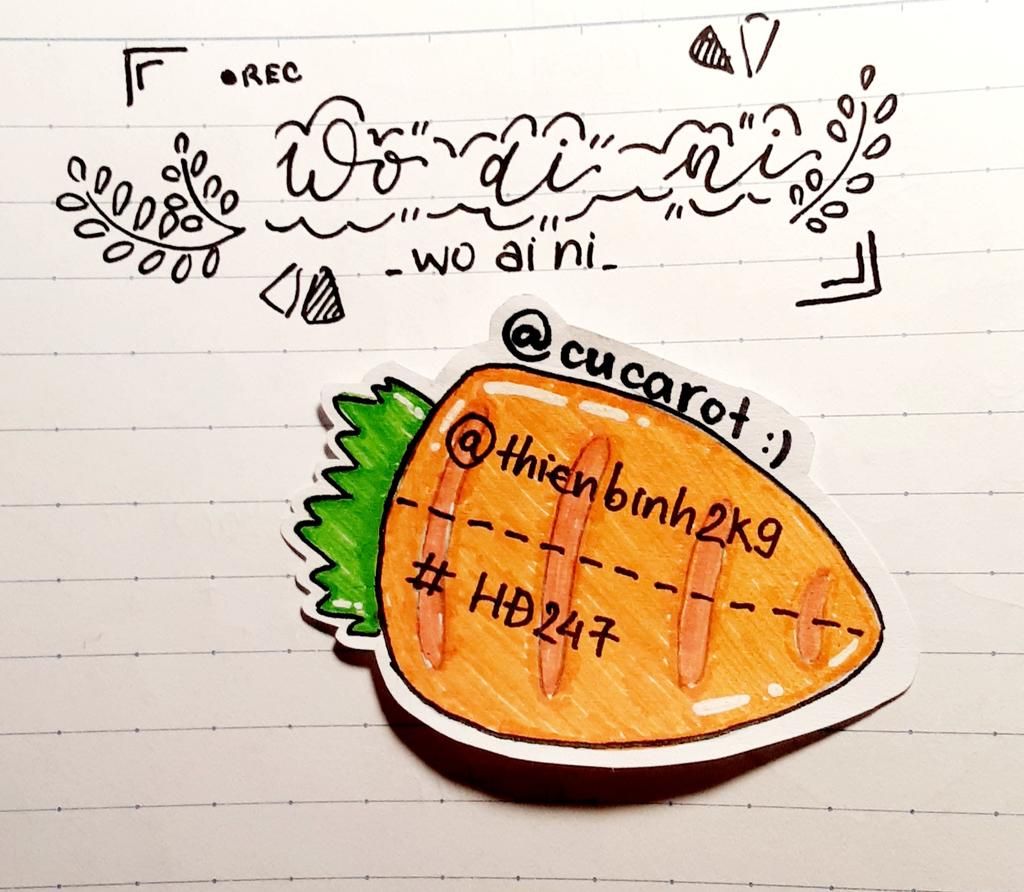 •REC
Wo ai ni
-wo ai ni-
@cucarot :)
@thienbinh2k9
# HĐ247